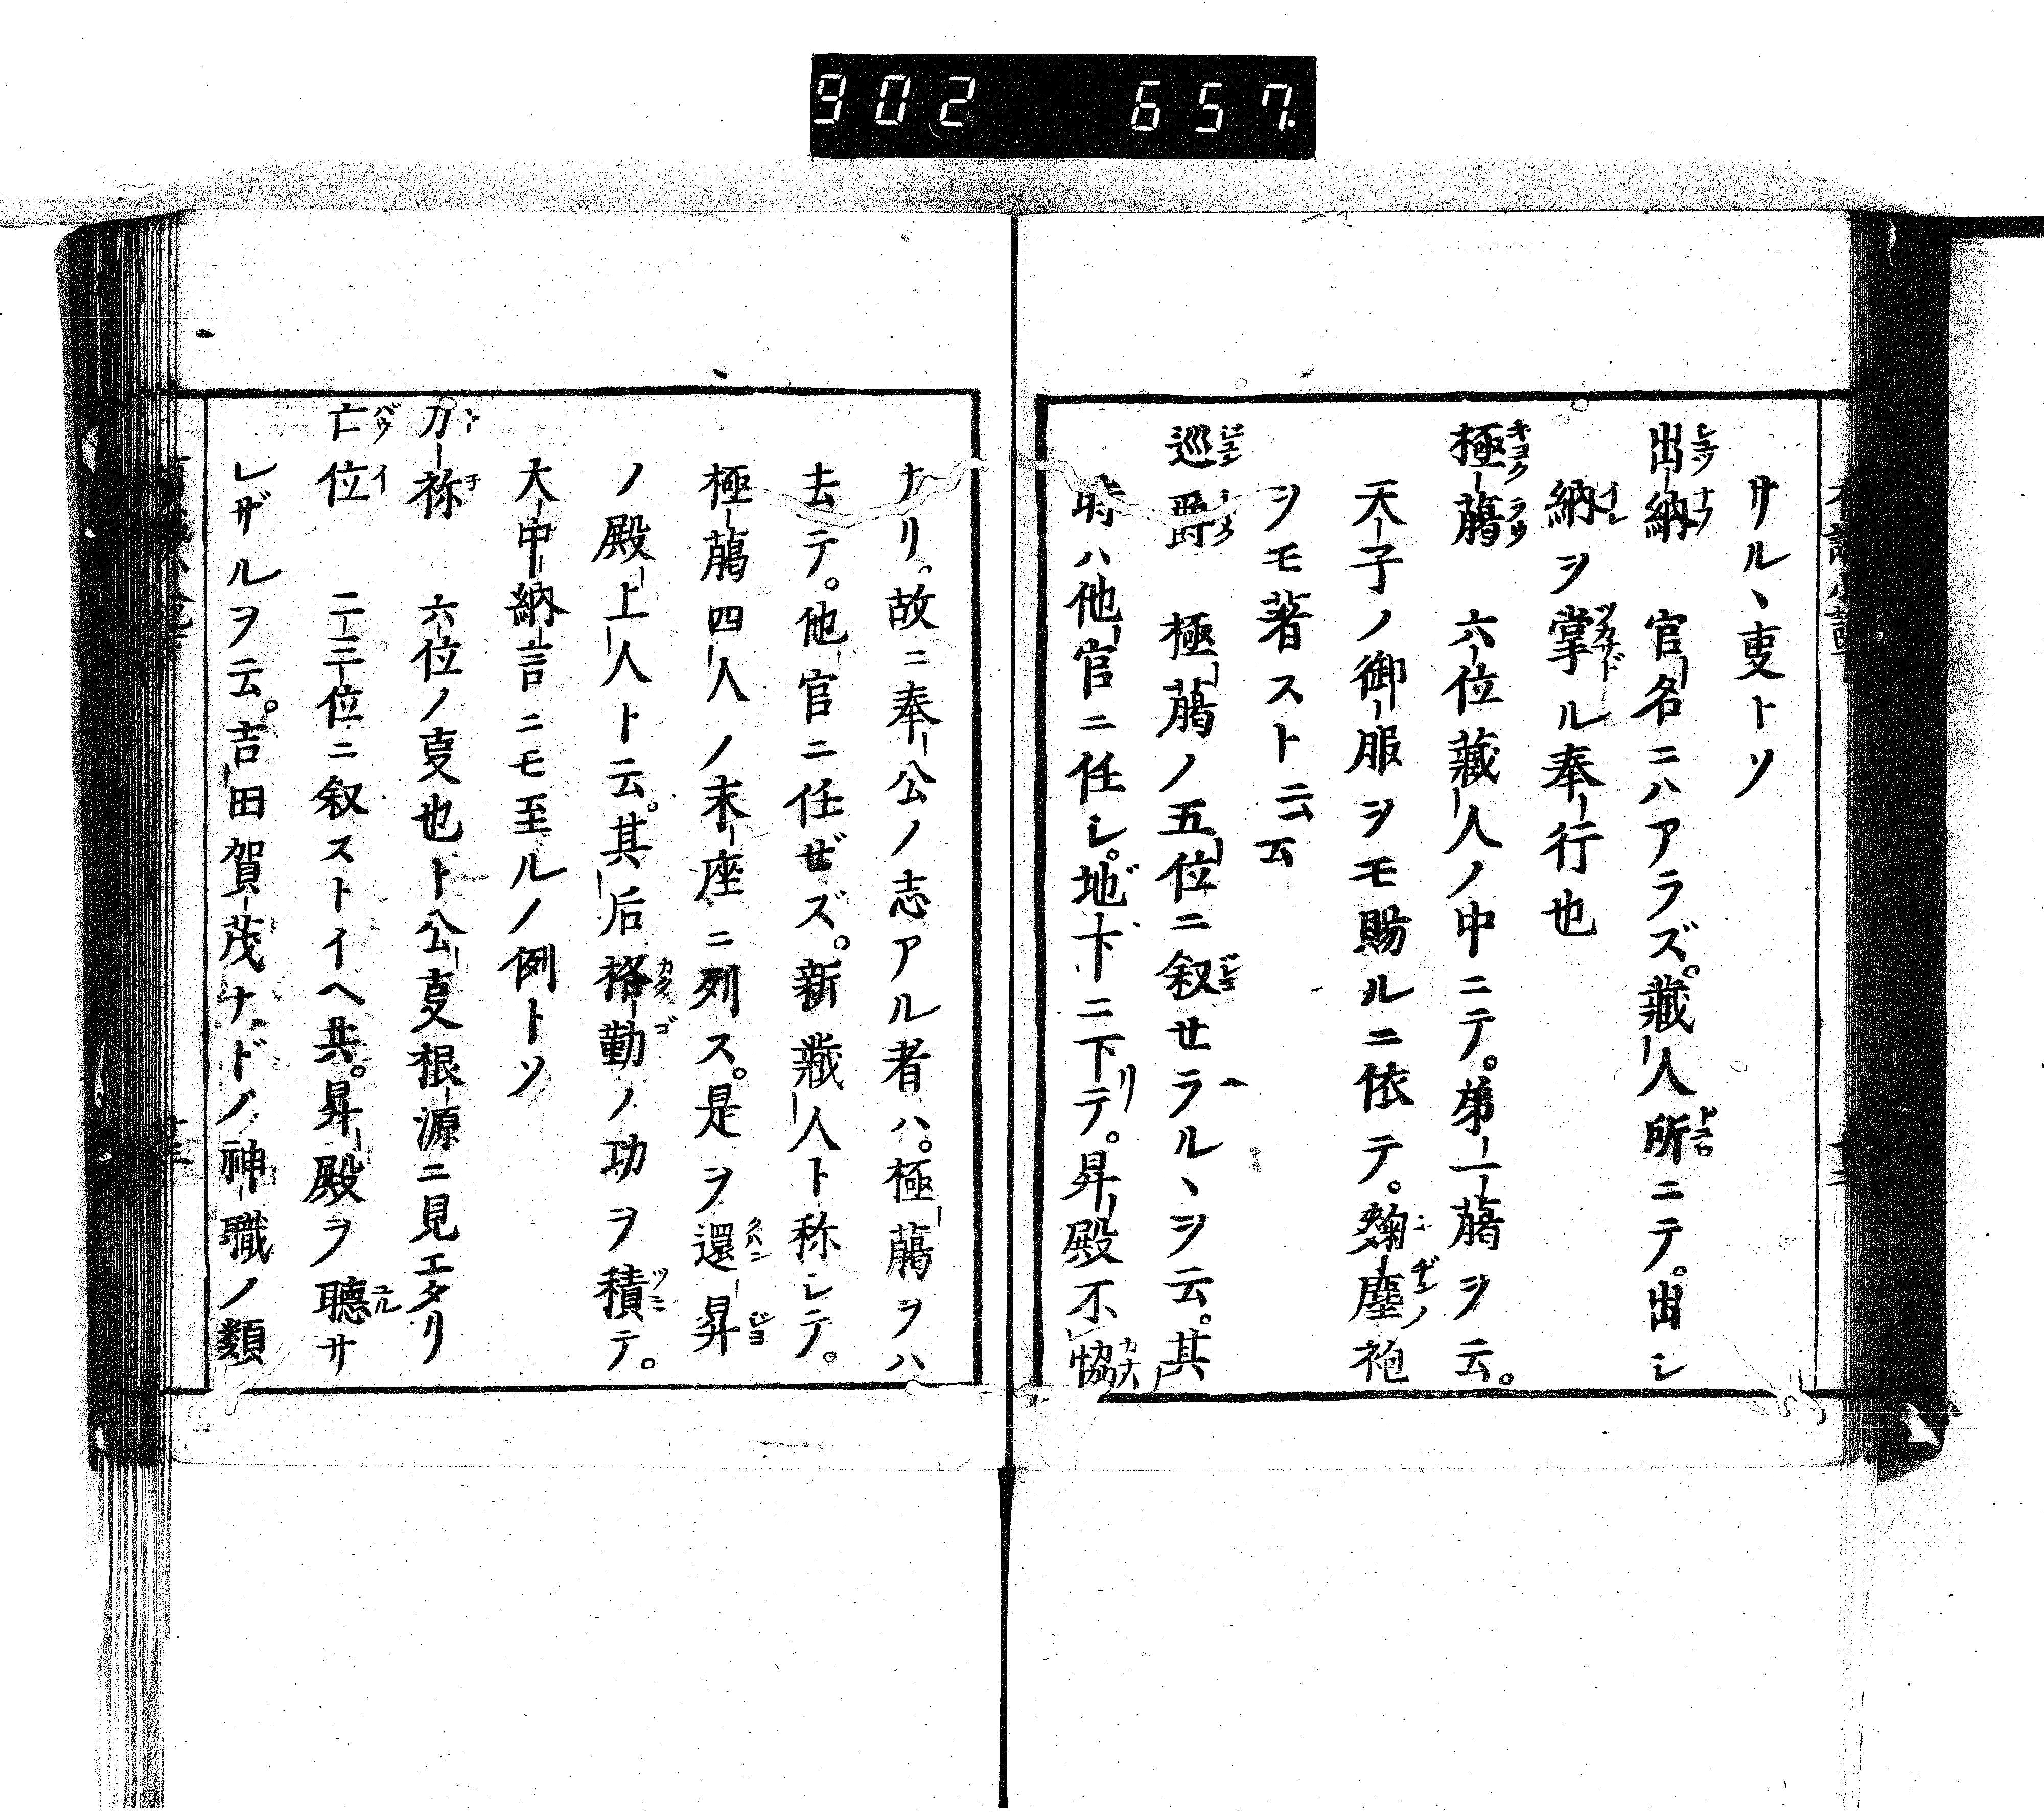 902 657.
サルヽ叓トソ
出納 官名ニハアラズ。藏人所ニテ。出シ
納ヲ掌ル奉行也
極﨟 六位藏人ノ中ニテ。第一﨟ヲ云。
天子ノ御服ヲモ賜ルニ依テ。麹塵ノ袍
ヲモ著スト云云
巡爵 極﨟ノ五位ニ叙セラルヽヲ云。其
時ハ他官ニ任シ。地下ニ下リテ。昇殿不協
ナリ。故ニ奉公ノ志アル者ハ。極﨟ヲハ
去テ。他官ニ任ゼズ。新藏人ト称シテ。
極﨟四人ノ末座ニ列ス。是ヲ還昇
ノ殿上人ト云。其后格勤ノ功ヲ積テ。
大中納言ニモ至ルノ例トソ
刀祢 六位ノ叓也ト公叓根源ニ見エタリ
亡位 二三位ニ叙ストイヘ共。昇殿ヲ聴サ
レザルヲ云。吉田賀茂ナドノ神職ノ類